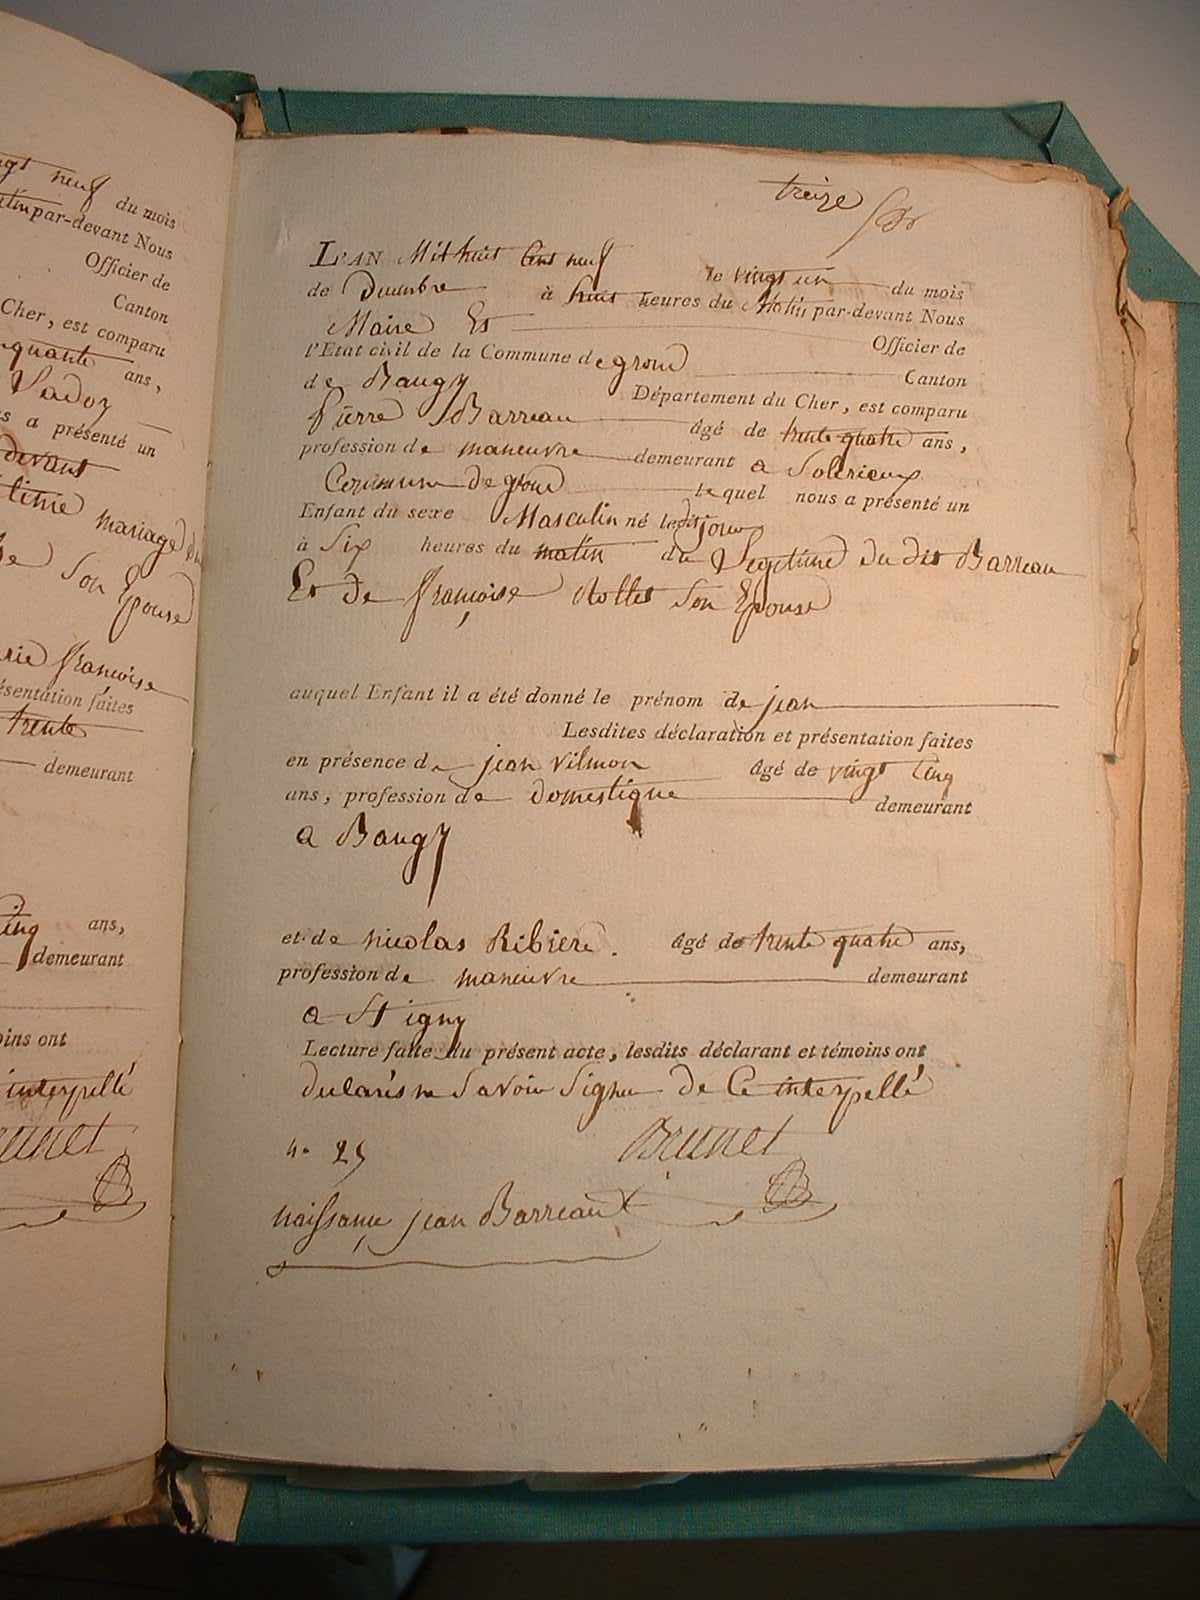 ngt neuf du mois
par-devant Nous
Officier de
Canton
Cher, est comparu
quante ans,
Sadoz
s a présenté un
devant
mariage du
Son Epouse
rie françoise
ésentation faites
trente
demeurant
Cinq ans,
demeurant
oins ont
interpellé
treize
L'AN Mil huit Cent neuf le vingt un du mois
de Decembre à huit heures du Matin par-devant Nous
Maire Et Officier de
l'Etat civil de la Commune de gron Canton
de Baugy Département du Cher, est comparu
Pierre Barreau âgé de trente quatre ans,
profession de maneuvre demeurant a Solerieux
Commune de gron lequel nous a présenté un
Enfant du sexe Masculin né ledit jour
à Six heures du matin du Legitime du dit Barreau
Et de françoise Rollet Son Epouse
auquel Enfant il a été donné le prénom de jean
Lesdites déclaration et présentation faites
en présence de jean Vilmon âgé de vingt Cinq
ans, profession de domestique demeurant
a Baugy
et de nicolas Ribiere. âgé de trente quatre ans,
profession de maneuvre demeurant
a St igny
Lecture faite du présent acte, lesdits déclarant et témoins ont
declarés ne Savoir Signer de Ce interpellé
n° 25 Brunet
naissance jean Barreau